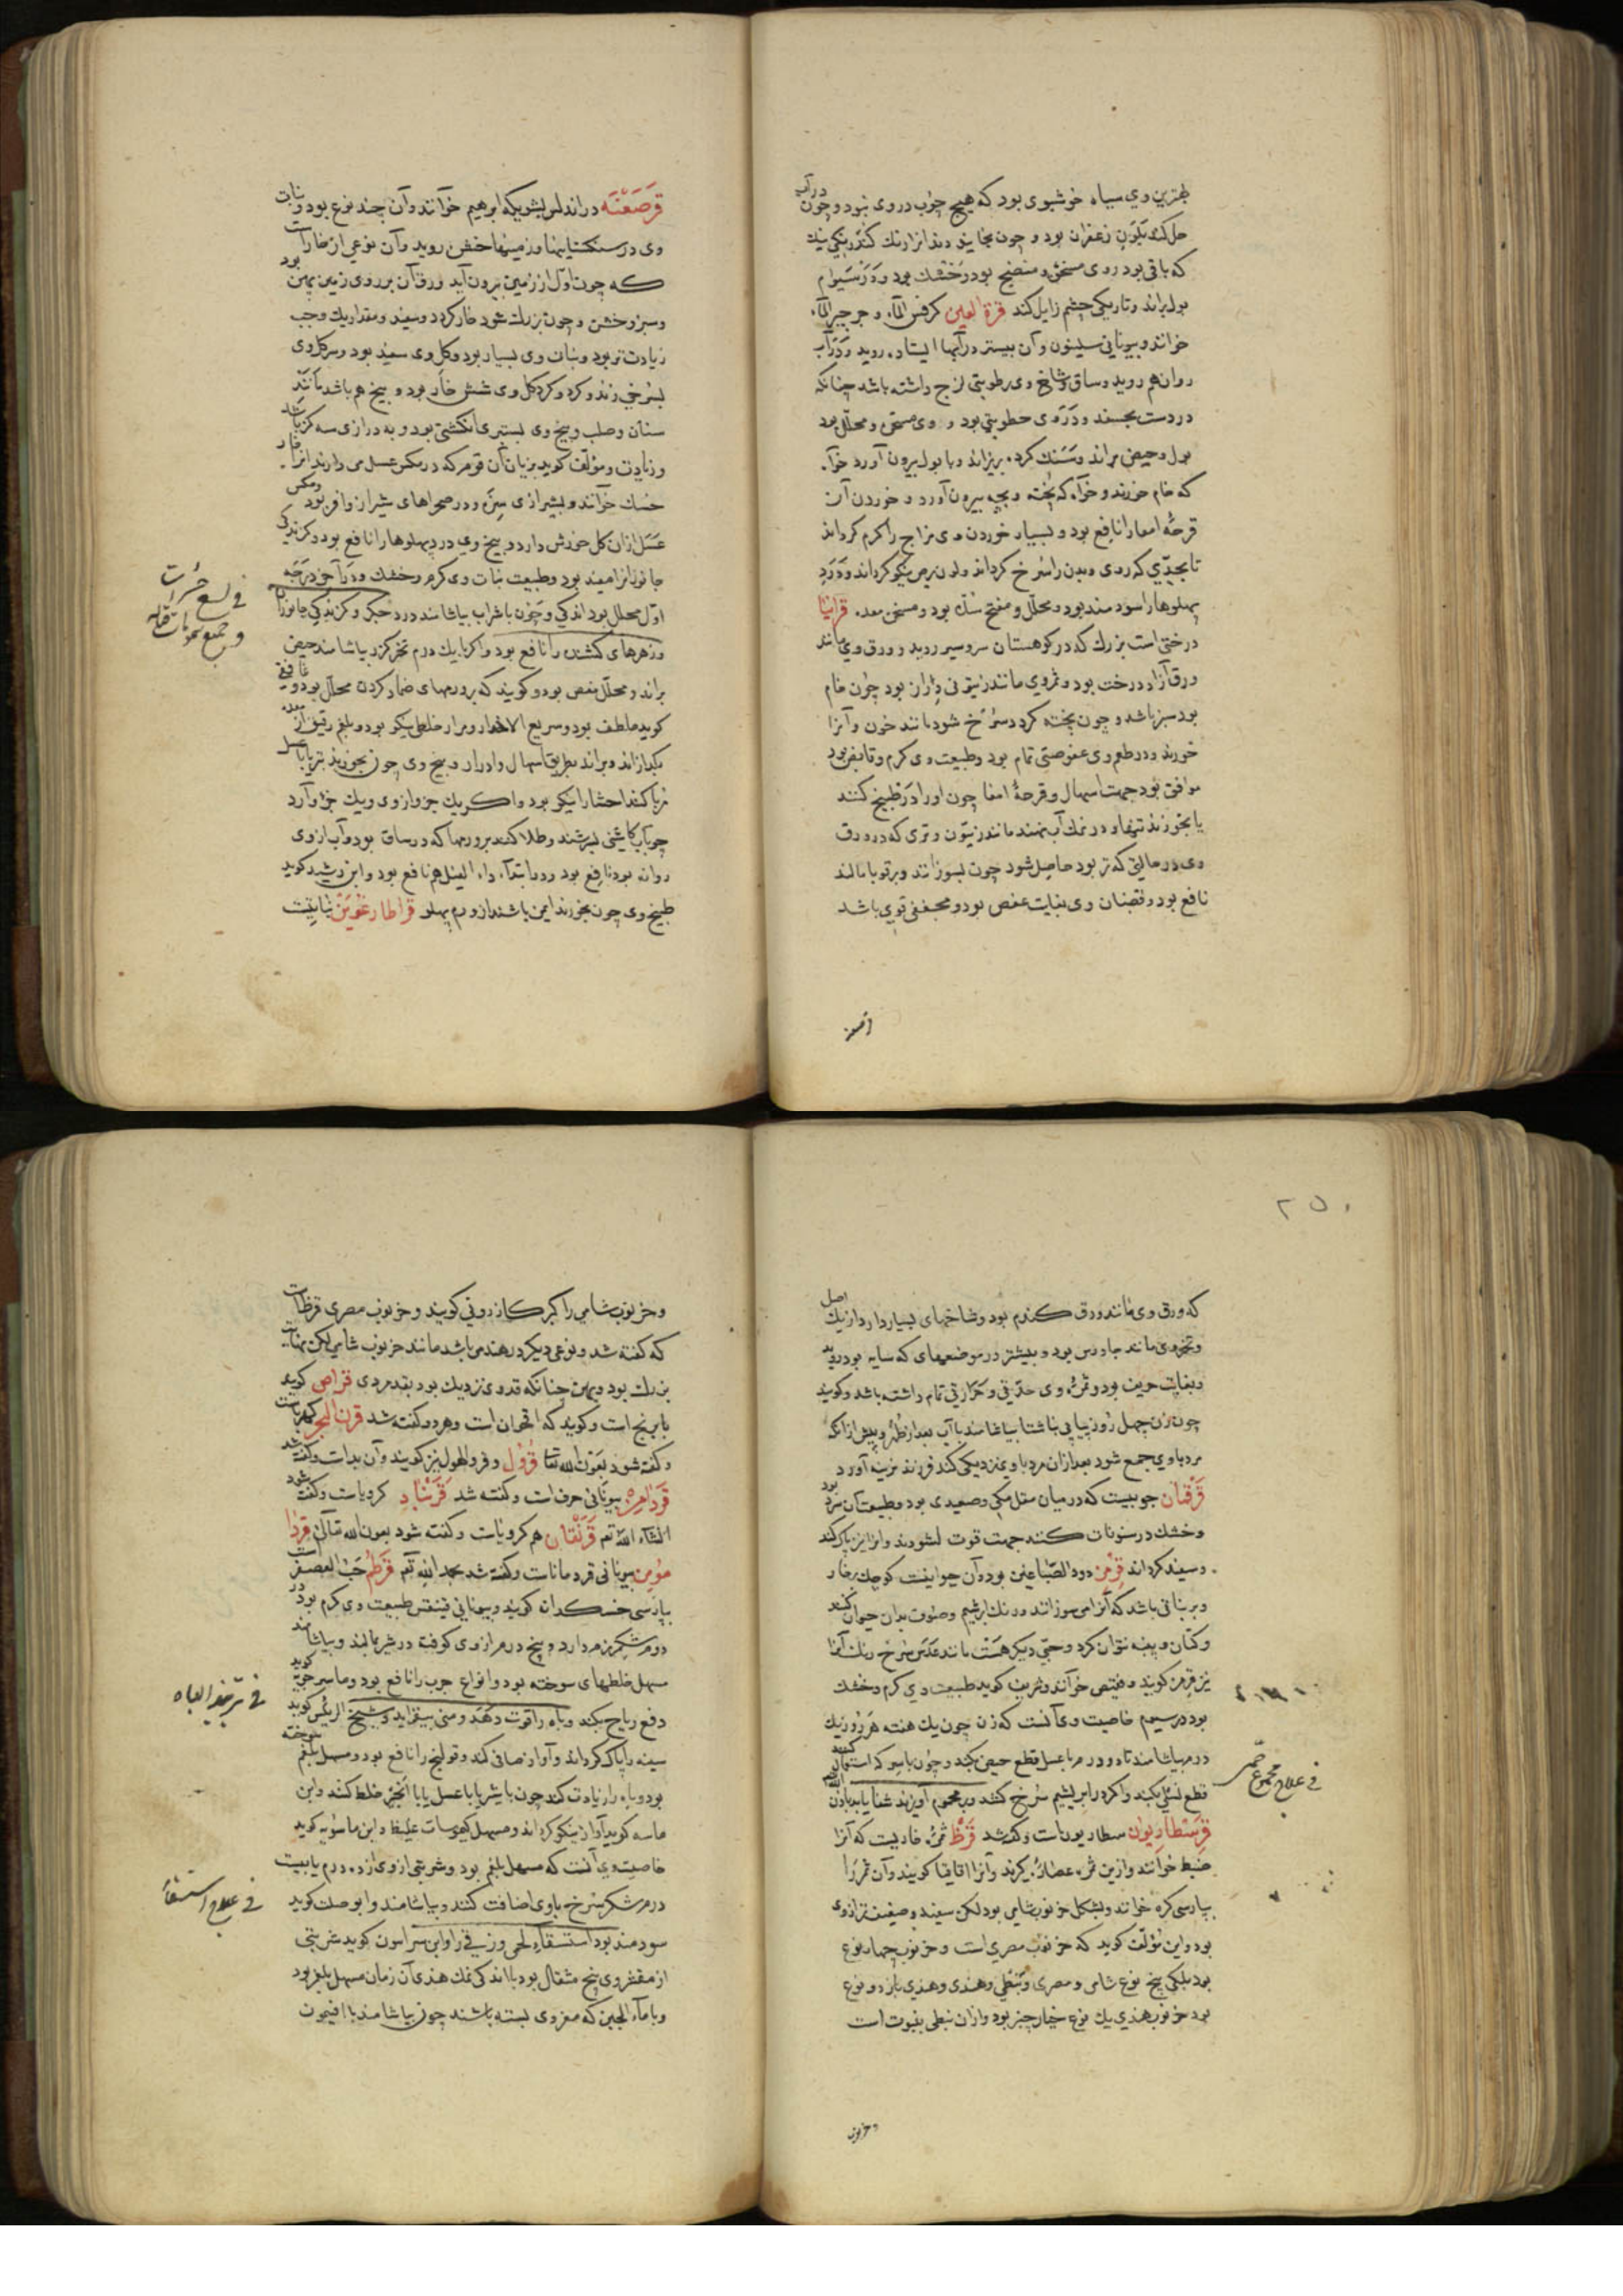 بهترین وی سیاه خوشبوی بود که هیچ چوب در وی نبود و چون در آب
حل کنند بلون زعفران بود و چون بخایند دندانرا رنک کند رنکی نیک
که باقی بود و وی مسخن و منضج بود و خشک بود در سیوم
بول براند و تاریکی چشم زایل کند قرة العین کرفس الماء و جرجیر الماء
خوانند و بیونانی سلینون و آن بیشتر در آبها ایستاده روید و در آب
روان هم روید و ساق و شاخ وی رطوبتی لزج داشته باشد چنانکه
در دست بچسبد و در وی عطریتی بود و وی مسخن و محلل بود
بول و حیض براند و سنک کرده بریزاند و با بول بیرون آورد خواه
که خام خورند و خواه که پخته و بچه بیرون آورد و خوردن آن
قرحۀ امعا را نافع بود و بسیار خوردن وی مزاج را کرم کرداند
تا بحدی که روی و بدن را سرخ کرداند و لون برص نیکو کرداند و درد
پهلوها را سودمند بود و محلل و مفتح سدد بود و مسخن معده قرانیا
درختی است بزرک که در کوهستان سردسیر روید و ورق وی مانند
ورق آزاد درخت بود و ثمر وی مانند زیتونی دراز بود چون خام
بود سبز باشد و چون پخته کردد سرخ شود مانند خون و آنرا
خورند و در طعم وی عفوصتی تمام بود و طبیعت وی کرم و قابض بود
موافق بود جهت اسهال و قرحۀ امعا چون او را در طبیخ کنند
یا بخورند تنها و در نمک آب نهند مانند زیتون و تری که در ورق
وی در حالتی که تر بود حاصل شود چون بسوزانند و بر قوبا مالند
نافع بود و قضبان وی بغایت عفص بود و مجففی قوی باشد
قرصعنه در اندلس بشویکه ابرهیم خوانند و آن چند نوع بود و نبات
وی در سنکستانها و زمینها خشن روید و آن نوعی از خار است
که چون اول از زمین بیرون آید ورق آن بر روی زمین پهن بود
و سبز و خشن و چون بزرک شود خار کردد و سفید و مقدار یک وجب
زیادت تر بود و نبات وی بسیار بود و کل وی سفید بود و سر کل وی
بسرخی زند و کرد بر کرد کل وی شش خار بود و بیخ هم باشد مانند
سنان و صلب و بیخ وی بستبری انکشتی بود و به درازی سه کز باشد
و زیادت و مؤلف کوید بزبان آن قوم که در مکس عسل می دارند آنرا خار
خسک خوانند و بشیرازی و در صحراهای شیراز وافر بود و مکس
عسل از آن کل خورش دارد و بیخ وی درد پهلوها را نافع بود و کزندکی
جانورانرا مفید بود و طبیعت نبات وی کرم و خشک و در آخر درجه
اول محلل بود اندکی و چون با شراب بیاشامند درد جکر و کزندکی جانوران
و زهرهای کشنده را نافع بود و اکر با یک درم تخم کزر بیاشامند حیض
براند و محلل مغص بود و کویند که بر ورمهای ضماد کردن محلل بود و غافقی
کوید ملطف بود و سریع الانحدار و مرار خلطی نیکو بود و بلغم رقیق از معده
بکدازاند و براند بطریق اسهال و ادرار و بیخ وی چون بخورند تر یا با عسل
مربا کنند احشا را نیکو بود و اکر یک جزو از وی و یک جزو آرد
جو بآب کاشنی بسرشند و طلا کنند بر ورمها که در ساق بود و آب از وی
روانه بود نافع بود و در ابتداء داء الفیل هم نافع بود و ابن رشید کوید
طبیخ وی چون بخورند ایمن باشند از ورم پهلو قراطارغویس نباتیست
فی لسع حشرات
و جمیع سمومات قتاله
۲۵۰
که ورق وی مانند ورق کندم بود و شاخهای بسیار دارد از یک اصل
و تخم وی مانند جاورس بود و بیشتر در موضعهای که سایه بود روید
و بغایت حریف بود و ثمره وی حدتی و حرارتی تمام داشته باشد و کویند
چون زن چهل روز پیاپی بناشتا بیاشامد با آب بعد از طهر و پیش از آنکه
مرد با وی جمع شود بعد از آن مرد با وی نزدیکی کند فرزند نرینه آورد
قرقمان چوبیست که در میان مقل مکی و صعیدی بود و طبیعت آن سرد بود
و خشک در سنونات کنند جهت قوت لثه و دندانرا نیز پاک کند
و سفید کرداند قرمز دود الصباغین بود و آن حیوانیست کوچک بر خار
و بر نباتی باشد که آنرا می سوزانند و رنک ابرشیم و صوف بدان حیوان کنند
و کتان و پنبه نتوان کرد و حبی دیکر هست مانند عدس سرخ رنک آنرا
نیز قرمز کویند و خوانند و شریف کوید طبیعت وی کرم و خشک
بود در سیم خاصیت وی آنست که زن چون یک هفته هر روز یک
درم بیاشامد تا دو درم با عسل قطع حیض بکند و چون با سرکه استعمال کنند
قطع نسل بکند و اکر در ابریشم سرخ کشند و بر محموم آویزند شفا یابد باذن الله
قرسطاریون سطاریون است و کفته شد قرظ ثمره خاریست که آنرا
ضبط خوانند و از این ثمره عصاره کیرند و آنرا اقاقیا کویند و آن ثمر را
بپارسی کره خوانند و بشکل خرنوب شامی بود لکن سفید و ضعیفتر از وی
بود و ابن مؤلف کوید که خرنوب مصری است و خرنوب چهار نوع
بود بلکی پنج نوع شامی و مصری و نبطی و هندی و هندی باز دو نوع
بود خرنوب هندی یک نوع خیار چنبر بود و از آن نبطی ینبوت است
و خرنوب
فی علاج مجموع حمی
و خرنوب شامی را کبر کازرونی کویند و خرنوب مصری قرظ است
که کفته شد و نوعی دیکر در هند می باشد مانند خرنوب شامی لکن بغایت
بزرک بود و پهن چنانکه قد وی نزدیک بود بقد مردی قراص کویند
بابونج است و کویند که اقحوان است و هر دو کفته شد قرن البحر کهرباست
و کفته شود بعون الله تعالی قرول و قرولهول نیز کویند و آن بداست و کفته شد
قرة بیونانی حرف است و کفته شد قرنباد کرویاست و کفته شود
انشاء الله تعم قرنقان هم کرویاست و کفته شود بعون الله تعالی قردا
مومن بیونانی قردماناست و کفته شد بحمد الله تعم قرطم حب العصفر است
بپارسی خسکدانه کویند و بیونانی قنیقس طبیعت وی کرم بود در
دوم و پنج درم از وی کوفته در شیر مالند و بیاشامند
مسهل خلطهای سوخته بود و انواع جرب را نافع بود و ماسرجویه کوید
دفع ریاح بکند و باه را قوت دهد و منی بیفزاید و شیخ الرئیس کوید
سینه را پاک کرداند و آواز صافی کند و قولنج را نافع بود و مسهل بلغم سوخته
بود و باه را زیادت کند چون با شیر یا با عسل یا با انجیر خلط کنند و ابن
ماسه کوید آواز نیکو کرداند و مسهل کیموسات غلیظ و ابن ماسویه کوید
خاصیت وی آنست که مسهل بلغم بود و شربتی از وی از ده درم یا بیست
درم شکر سرخ با وی اضافت کنند و بیاشامند و ابو صلت کوید
سودمند بود استسقاء لحمی و زقی را و ابن سراسون کوید شربتی
از مقشر وی پنج مثقال بود با اندکی نمک هندی آن زمان مسهل بلغم بود
و با ماء الجبن که مغز وی بسته باشند چون بیاشامند با افتیمون
فی تزیید الباه
فی علاج استسقاء